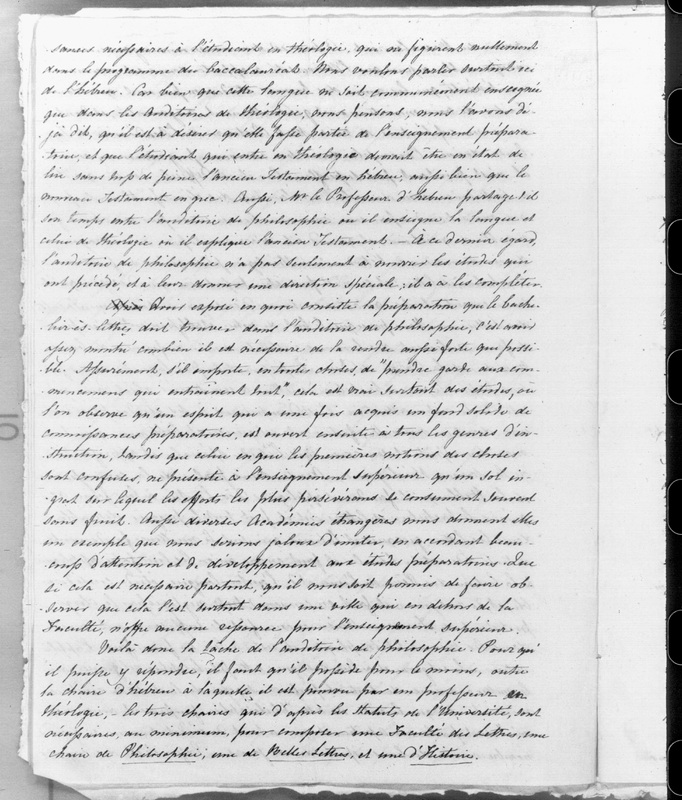 sances nécessaires à l'étudiant en théologie, qui ne figurent nullement
dans le programme du baccalauréat. Nous voulons parler surtout ici
de l'hébreu. Car bien que cette langue ne soit communément enseignée
que dans les Auditoires de théologie, nous pensons, nous l'avons dé-
-jà dit, qu'il est à désirer qu'elle fasse partie de l'enseignement prépara-
-toire, et que l'étudiant qui entre en théologie devrait être en état de
lire sans trop de peine l'ancien Testament en hébreu, aussi bien que le
nouveau Testament en grec. Aussi, Mr le Professeur d'hébreu partage-t-il
son temps entre l'auditoire de philosophie où il enseigne la langue et
celui de théologie où il explique l'ancien Testament. — À ce dernier égard,
l'auditoire de philosophie n'a pas seulement à nourrir les études qui
ont précédé, et à leur donner une direction spéciale; il a à les compléter.
Avoir exposé en quoi consiste la préparation que le bache-
-lier ès lettres doit trouver dans l'auditoire de philosophie, c'est avoir
assez montré combien il est nécessaire de la rendre aussi forte que possi-
-ble. Assurément, s'il importe, en toutes choses, de "prendre garde aux com-
-mencemens qui entraînent tout", cela est vrai surtout des études, où
l'on observe qu'un esprit qui a une fois acquis un fond solide de
connoissances préparatoires, est ouvert ensuite à tous les genres d'in-
-struction, tandis que celui en qui les premières notions des choses
sont confuses, ne présente à l'enseignement supérieur qu'un sol in-
-grat sur lequel les efforts les plus persévérans se consument souvent
sans fruit. Aussi diverses Académies étrangères nous donnent elles
un exemple que nous serions jaloux d'imiter, en accordant beau-
-coup d'attention et de développement aux études préparatoires. Que
si cela est nécessaire partout, qu'il nous soit permis de faire ob-
-server que cela l'est surtout dans une ville qui en dehors de la
Faculté, n'offre aucune ressource pour l'enseignement supérieur.
Voilà donc la tâche de l'auditoire de philosophie. Pour qu'
il puisse y répondre, il faut qu'il possède pour le moins, outre
la chaire d'hébreu à laquelle il est pourvu par un professeur en
théologie, les trois chaires qui d'après les statuts de l'Université, sont
nécessaires, au minimum, pour composer une Faculté des Lettres, une
chaire de Philosophie, une de Belles Lettres, et une d'Histoire.